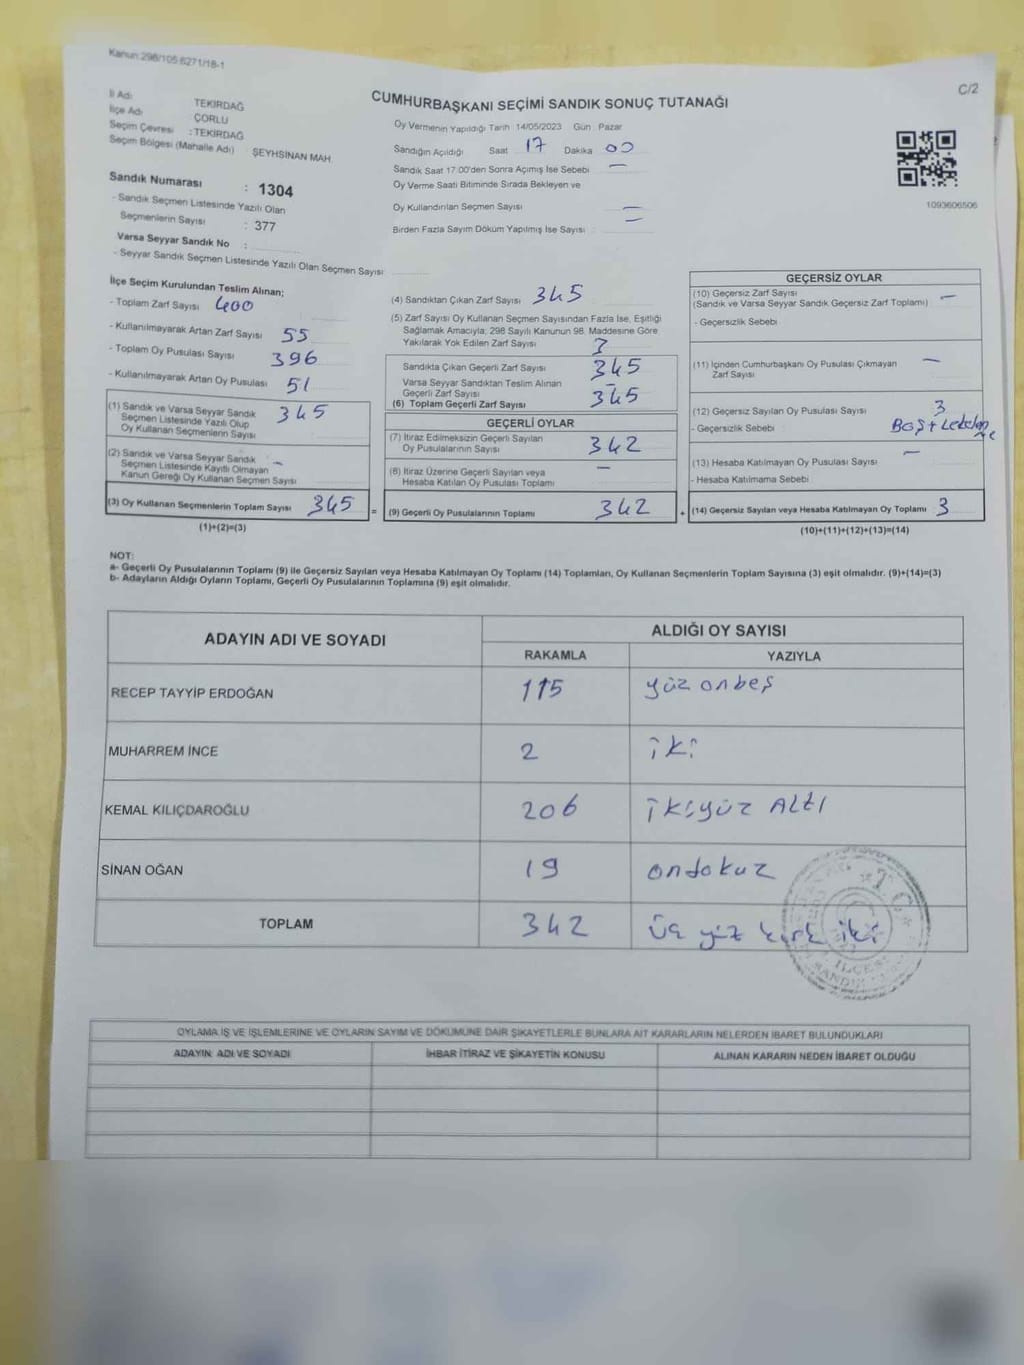 Kanun:298/105:6271/18-1
C/2
CUMHURBAŞKANI SEÇİMİ SANDIK SONUÇ TUTANAĞI
İl Adı TEKİRDAĞ
İlçe Adı ÇORLU
Seçim Çevresi : TEKİRDAĞ
Seçim Bölgesi (Mahalle Adı) ŞEYHSİNAN MAH.
Sandık Numarası : 1304
- Sandık Seçmen Listesinde Yazılı Olan
Seçmenlerin Sayısı : 377
Varsa Seyyar Sandık No :
- Seyyar Sandık Seçmen Listesinde Yazılı Olan Seçmen Sayısı
Oy Vermenin Yapıldığı Tarih 14/05/2023 Gün Pazar
Sandığın Açıldığı Saat 17 Dakika 00
Sandık Saat 17:00'den Sonra Açımış İse Sebebi —
Oy Verme Saati Bitiminde Sırada Bekleyen ve
Oy Kullandırılan Seçmen Sayısı —
Birden Fazla Sayım Döküm Yapılmış İse Sayısı : —
1093606506
İlçe Seçim Kurulundan Teslim Alınan;
- Toplam Zarf Sayısı 400
- Kullanılmayarak Artan Zarf Sayısı 55
- Toplam Oy Pusulası Sayısı 396
- Kullanılmayarak Artan Oy Pusulası 51
(1) Sandık ve Varsa Seyyar Sandık 345
Seçmen Listesinde Yazılı Olup
Oy Kullanan Seçmenlerin Sayısı
(2) Sandık ve Varsa Seyyar Sandık
Seçmen Listesinde Kayıtlı Olmayan —
Kanun Gereği Oy Kullanan Seçmen Sayısı
(3) Oy Kullanan Seçmenlerin Toplam Sayısı 345 =
(1)+(2)=(3)
(4) Sandıktan Çıkan Zarf Sayısı 345
(5) Zarf Sayısı Oy Kullanan Seçmen Sayısından Fazla İse, Eşitliği
Sağlamak Amacıyla; 298 Sayılı Kanunun 98. Maddesine Göre
Yakılarak Yok Edilen Zarf Sayısı
Sandıkta Çıkan Geçerli Zarf Sayısı 345
Varsa Seyyar Sandıktan Teslim Alınan
Geçerli Zarf Sayısı —
(6) Toplam Geçerli Zarf Sayısı 345
GEÇERLİ OYLAR
(7) İtiraz Edilmeksizin Geçerli Sayılan
Oy Pusulalarının Sayısı 342
(8) İtiraz Üzerine Geçerli Sayılan veya —
Hesaba Katılan Oy Pusulası Toplamı
(9) Geçerli Oy Pusulalarının Toplamı 342 +
GEÇERSİZ OYLAR
(10) Geçersiz Zarf Sayısı
(Sandık ve Varsa Seyyar Sandık Geçersiz Zarf Toplamı) —
- Geçersizlik Sebebi
(11) İçinden Cumhurbaşkanı Oy Pusulası Çıkmayan —
Zarf Sayısı
(12) Geçersiz Sayılan Oy Pusulası Sayısı 3
- Geçersizlik Sebebi BOŞ+
(13) Hesaba Katılmayan Oy Pusulası Sayısı —
- Hesaba Katılmama Sebebi
(14) Geçersiz Sayılan veya Hesaba Katılmayan Oy Toplamı 3
(10)+(11)+(12)+(13)=(14)
NOT:
a- Geçerli Oy Pusulalarının Toplamı (9) ile Geçersiz Sayılan veya Hesaba Katılmayan Oy Toplamı (14) Toplamları, Oy Kullanan Seçmenlerin Toplam Sayısına (3) eşit olmalıdır. (9)+(14)=(3)
b- Adayların Aldığı Oyların Toplamı, Geçerli Oy Pusulalarının Toplamına (9) eşit olmalıdır.
ADAYIN ADI VE SOYADI
ALDIĞI OY SAYISI
RAKAMLA YAZIYLA
RECEP TAYYİP ERDOĞAN 115 yüz onbeş
MUHARREM İNCE 2 iki
KEMAL KILIÇDAROĞLU 206 ikiyüz ALTI
SİNAN OĞAN 19 ondokuz
TOPLAM 342 Üç yüz kırk iki
T.C.
OYLAMA İŞ VE İŞLEMLERİNE VE OYLARIN SAYIM VE DÖKÜMÜNE DAİR ŞİKAYETLERLE BUNLARA AİT KARARLARIN NELERDEN İBARET BULUNDUKLARI
ADAYIN ADI VE SOYADI İHBAR İTİRAZ VE ŞİKAYETİN KONUSU ALINAN KARARIN NEDEN İBARET OLDUĞU